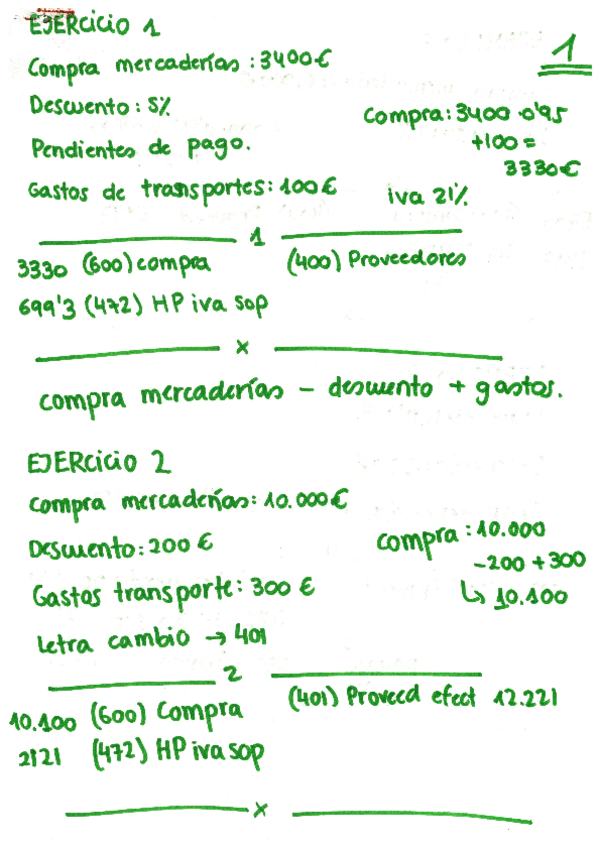 EJERcicio 1
1
Compra mercaderías : 3400€
Descuento : 5%
Compra: 3400 · 0'95
Pendientes de pago.
+100 =
3330€
Gastos de transportes: 100€
iva 21%
1
3330 (600) compra
(400) Proveedores
699'3 (472) HP iva sop
x
compra mercaderías – descuento + gastos.
EJERcicio 2
Compra mercaderías: 10.000€
Descuento: 200 €
compra : 10.000
-200 + 300
Gastos transporte: 300 €
↳ 10.100
Letra cambio → 401
2
10.100 (600) Compra
(401) Proveed efect 12.221
2121 (472) HP iva sop
x